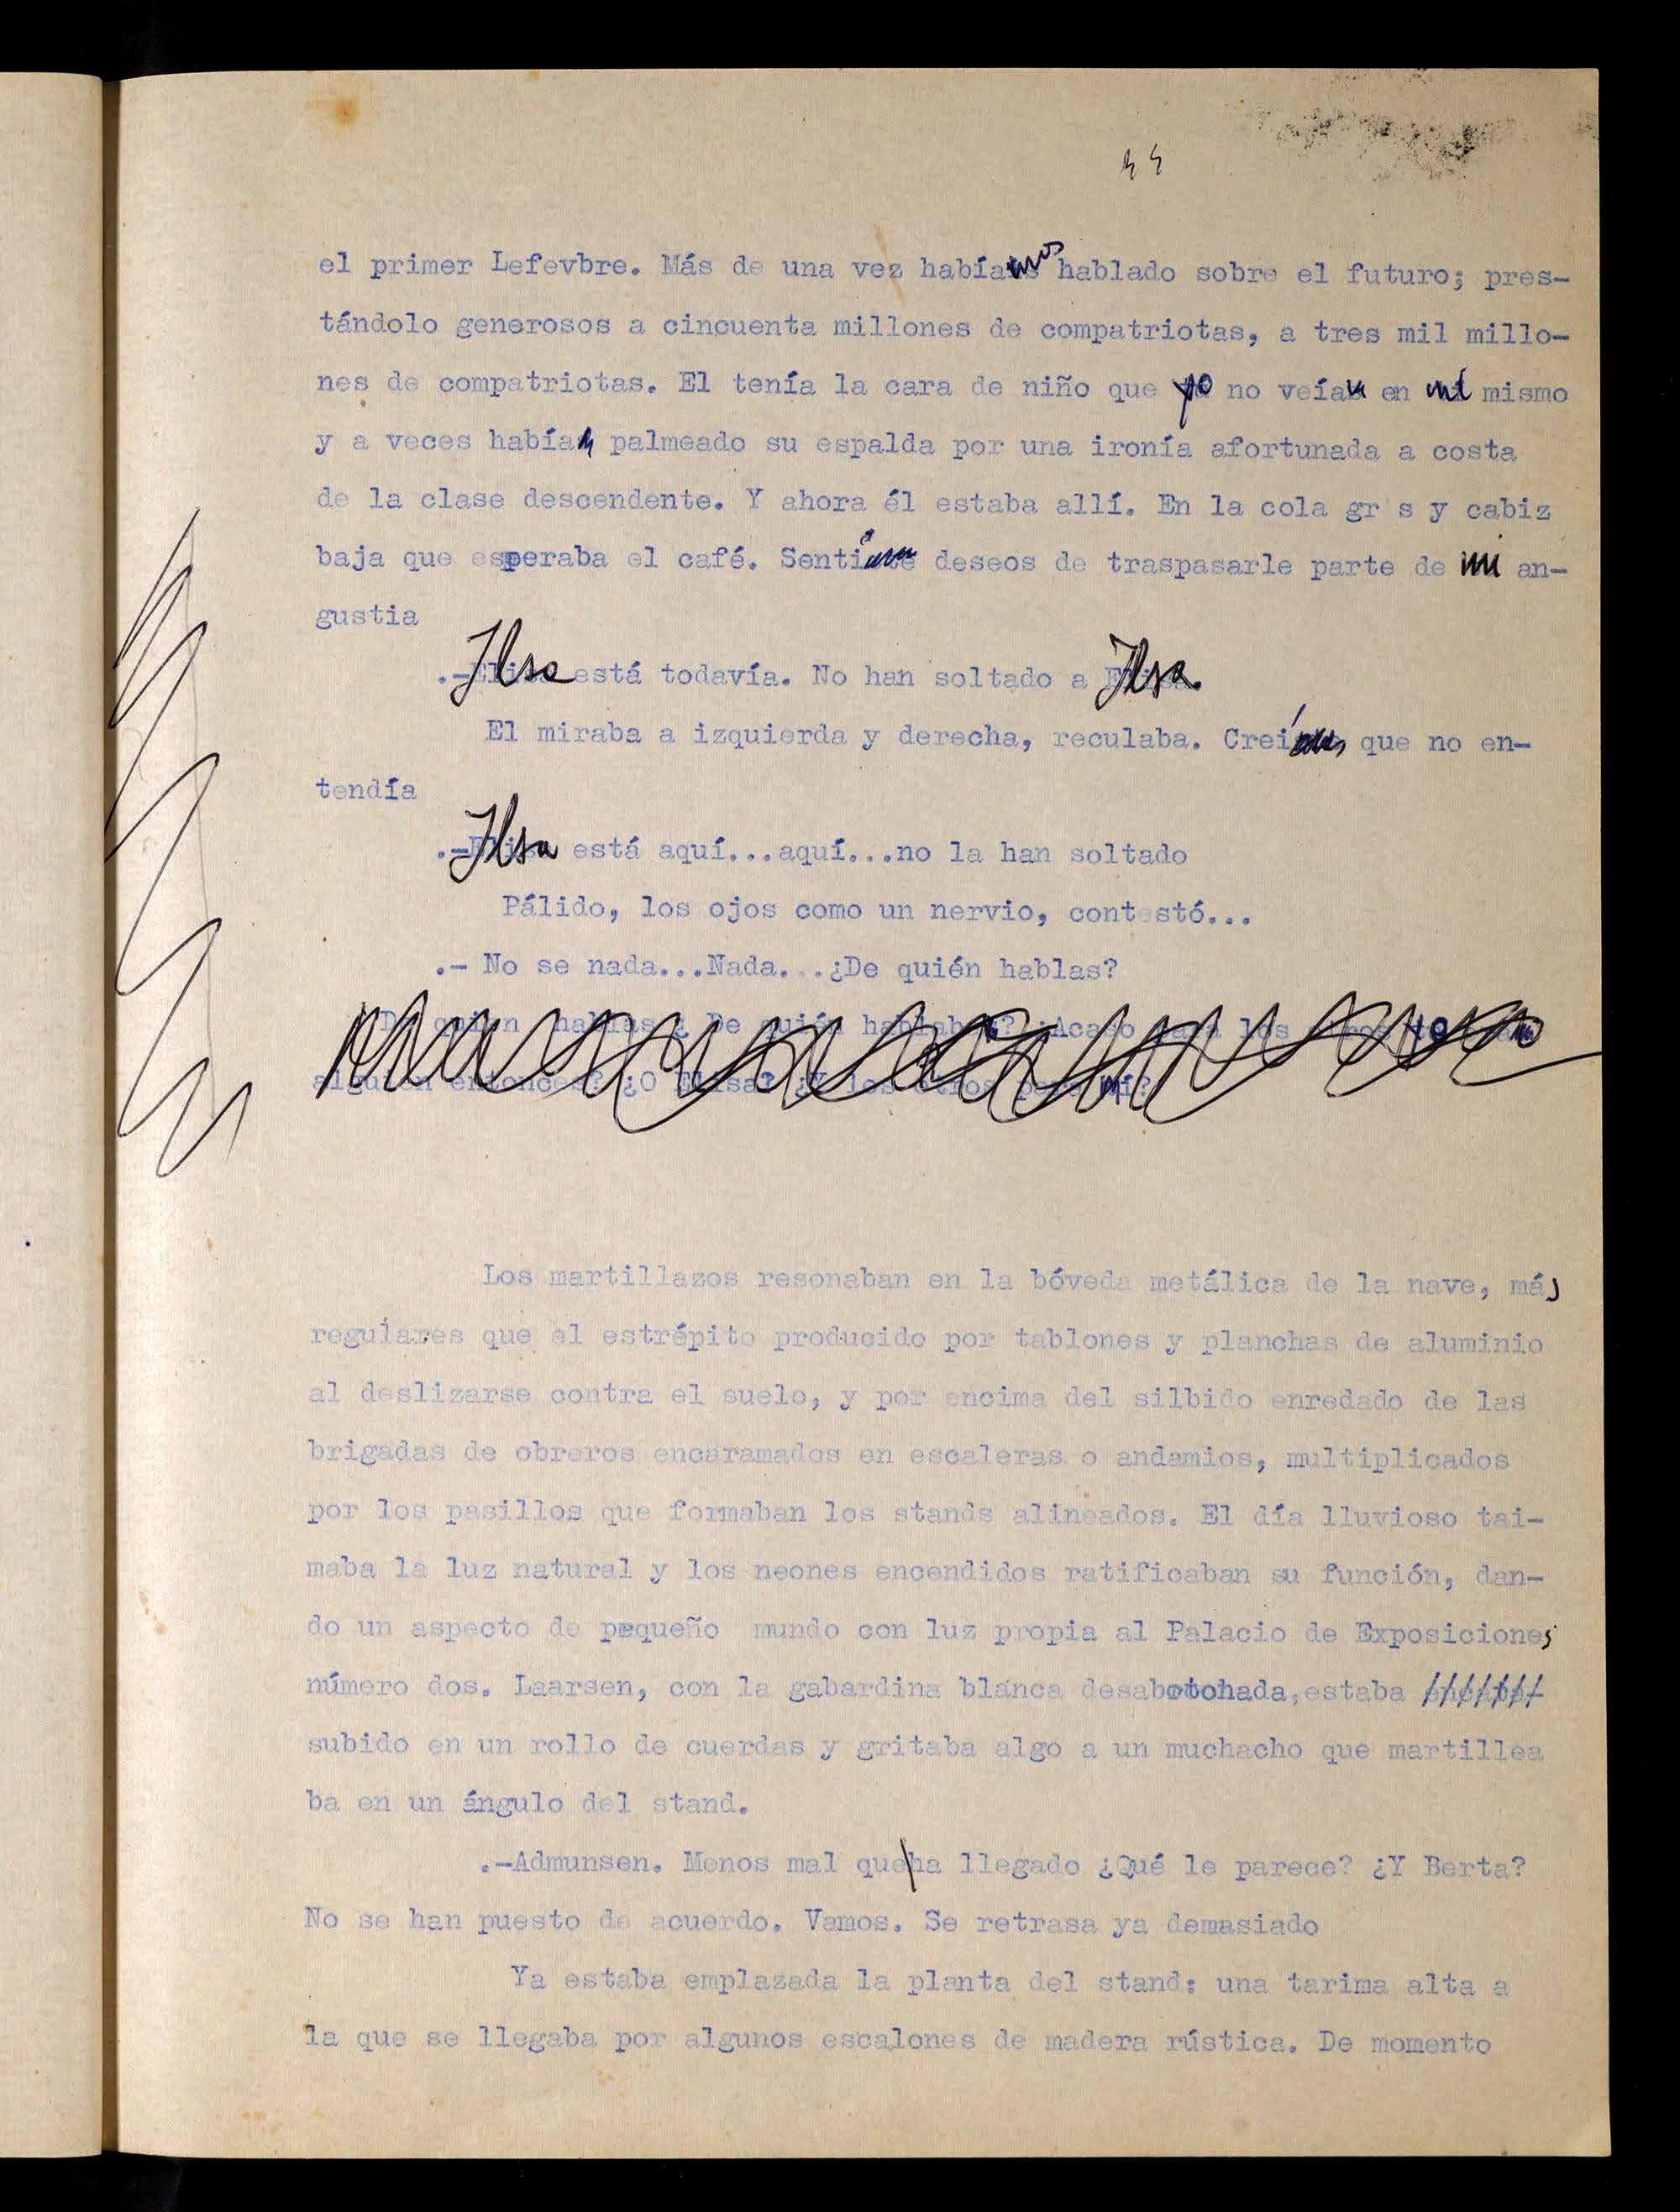 44
el primer Lefevbre. Más de una vez habíamos hablado sobre el futuro; pres-
tándolo generosos a cincuenta millones de compatriotas, a tres mil millo-
nes de compatriotas. El tenía la cara de niño que yo no veía en mí mismo
y a veces había palmeado su espalda por una ironía afortunada a costa
de la clase descendente. Y ahora él estaba allí. En la cola gr s y cabiz
baja que esperaba el café. Sentí deseos de traspasarle parte de mi an-
gustia
.-Ilsa está todavía. No han soltado a Ilsa.
El miraba a izquierda y derecha, reculaba. Creí que no en-
tendía
.-Ilsa está aquí...aquí...no la han soltado
Pálido, los ojos como un nervio, contestó...
.- No se nada...Nada...¿De quién hablas?
Los martillazos resonaban en la bóveda metálica de la nave, más
regulares que el estrépito producido por tablones y planchas de aluminio
al deslizarse contra el suelo, y por encima del silbido enredado de las
brigadas de obreros encaramados en escaleras o andamios, multiplicados
por los pasillos que formaban los stands alineados. El día lluvioso tai-
maba la luz natural y los neones encendidos ratificaban su función, dan-
do un aspecto de pequeño mundo con luz propia al Palacio de Exposiciones
número dos. Laarsen, con la gabardina blanca desabotohada,estaba
subido en un rollo de cuerdas y gritaba algo a un muchacho que martillea
ba en un ángulo del stand.
.-Admunsen. Menos mal que ha llegado ¿Qué le parece? ¿Y Berta?
No se han puesto de acuerdo. Vamos. Se retrasa ya demasiado
Ya estaba emplazada la planta del stand: una tarima alta a
la que se llegaba por algunos escalones de madera rústica. De momento